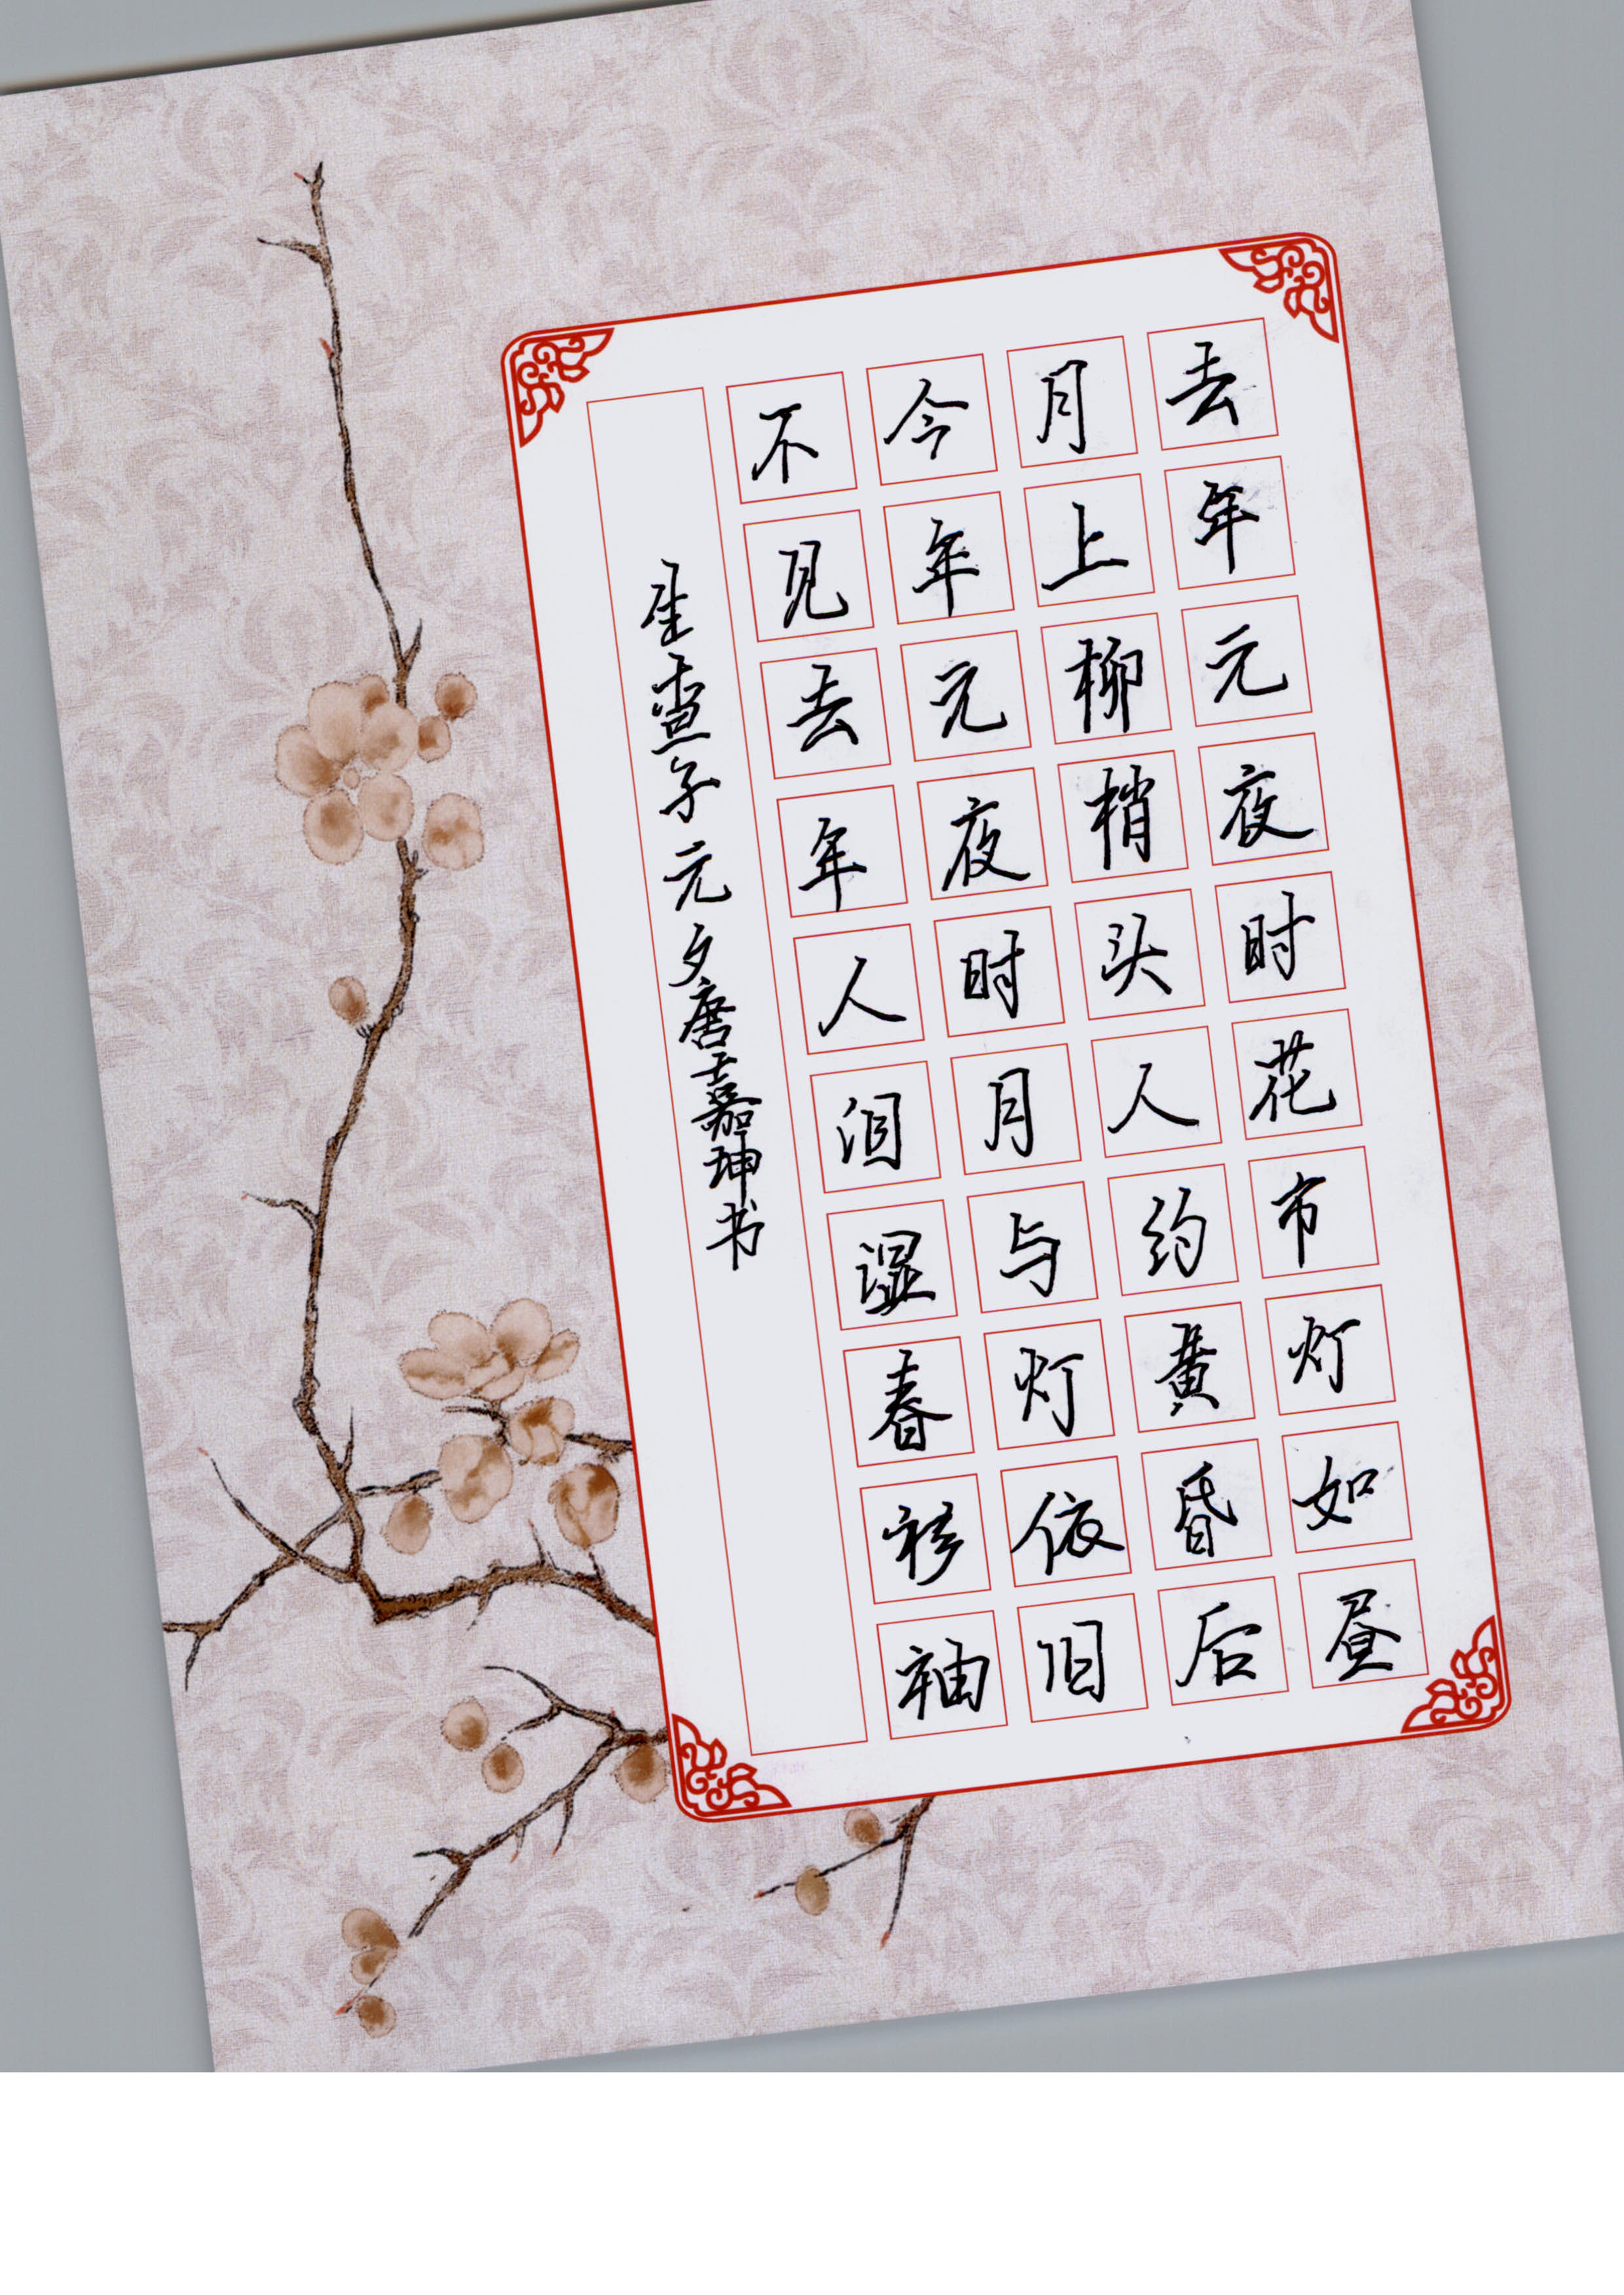 去年元夜时花市灯如昼
月上柳梢头人约黄昏后
今年元夜时月与灯依旧
不见去年人泪湿春衫袖
生查子元夕唐嘉坤书